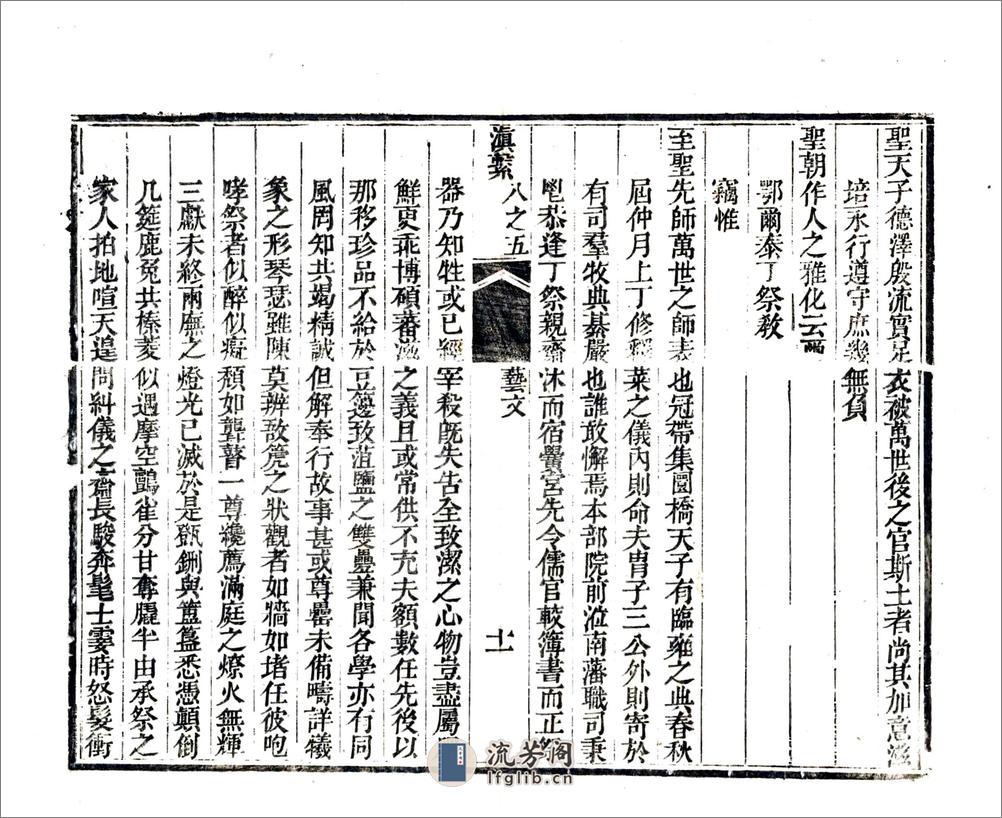 聖天子德澤殷流實足衣被萬世後之官斯土者尚其加意滋
培永行遵守庶幾無負
聖朝作人之雅化云爾
鄂爾泰丁祭敎
竊惟
至聖先師萬世之師表也冠帶集圜橋天子有臨雍之典春秋
屆仲月上丁修釋菜之儀內則命夫胄子三公外則寄於
有司羣牧典綦嚴也誰敢懈焉本部院前涖南藩職司秉
鬯恭逢丁祭親齋沐而宿黌宮先令儒官較簿書而正祭
滇繫
八之五
藝文
十一
器乃知牲或已經宰殺既失告全致潔之心物豈盡屬
鮮更乖博碩蕃滋之義且或常供不充夫額數任先後以
那移珍品不給於豆籩致菹鹽之雙疊兼聞各學亦有同
風罔知共竭精誠但解奉行故事甚或尊罍未備疇詳犧
象之形琴瑟雖陳莫辨敔箎之狀觀者如墻如堵任彼咆
哮祭者似醉似癡頹如聾瞽一尊纔薦滿庭之燎火無輝
三獻未終兩廡之燈光已滅於是甑鉶與簠簋悉憑顛倒
几筵鹿兔共榛菱似遇摩空鸇雀分甘奪臞半由承祭之
家人拍地喧天遑問糾儀之齋長駿奔髦士霎時怒髮衝
流芳阁
lfglib.cn